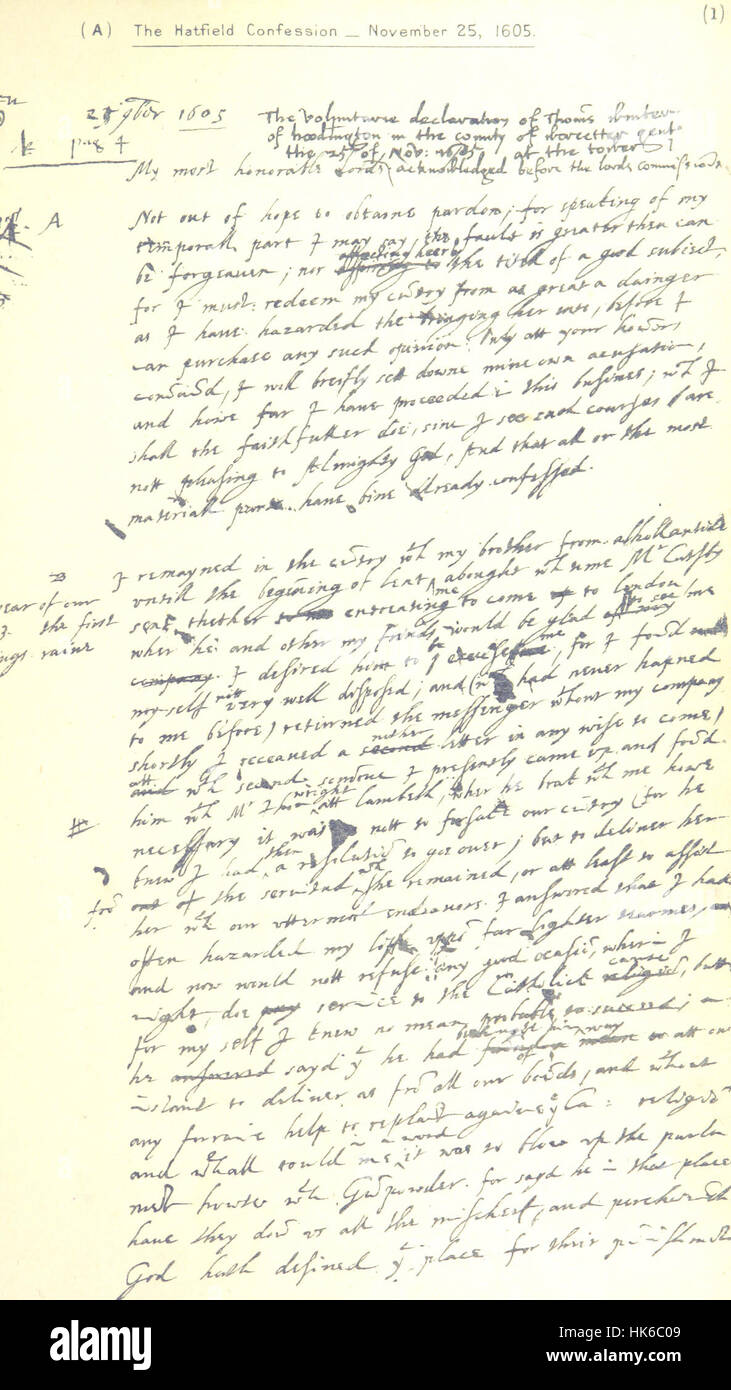 (1)
(A) The Hatfield Confession — November 25, 1605.
23 9ber 1605
The voluntarie declaration of Thoms Winter
of hoodington in the county of worcester gent
pag 4
the 25 of Nov: 1605 at the tower
My most honorable Lords acknowledged before the lords commissions
A Not out of hope to obtaine pardon; for speaking of my
temporall part I may say, the fault is greater then can
affecting heerby
be forgeauen; nor affecting to the titell of a good subiect,
for I must redeem my cuntry from as great a dainger
as I haue hazarded the bringing her into, before I
can purchase any such opinion; Only att your honors
comaund, I will breifly sett downe mine own accusation,
and howe far I haue proceeded in this busines; wch I
shall the faithfuller doe, since I see such courses are
nott pleasing to Almighty God, And that all or the most
material parts haue bine already confessed.
B I remayned in the cuntry wth my brother from alhollantide
year of our
untill the begining of lent, abought wch time Mr Catsby
the first
me
sent thether entreating to come to london
ngs raine
wher he and other my frends would be glad to see me
company. I desired him to excuse me, for I found
my self nott very well disposed; and (wch had never hapned
to me before) returned the messenger wthout my company
shortly I receaued a second letter in any wise to come,
att wch second I presently came vp and found
wright
him wth Mr Thon att lambeth, wher he brak wth me howe
necessary it was nott to forsake our cuntry (for he
then
knew I had a resolution to goe over) but to deliuer her
from out of the seruitud she remained, or att least to assist
her wth our vttermost endeavors. I answered that I had
often hazarded my life vpon far lighter tearmes,
and now would nott refuse any good ocasion, wherin I
cause
might doe service to the Catholick religion, butt
for my self I knew no mean probable to succeed;
way
he answered sayd yt he had of att on
instant to deliver us from all our bonds, and wthout
any forraine help to replant againe ye Ca: religion
in a word
and wthall tould me it was to blow vp the parla
ment howse wth Gunpowder. for sayd he in that place
haue they don vs all the mischeif, and perchance
God hath desined yt place for their punishment
alamy
Image ID: HK6C09
www.alamy.com